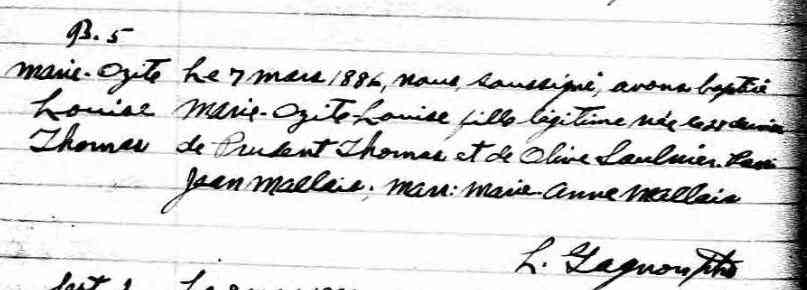 B. 5
Marie-Ozite Le 7 mars 1886, nous, soussigné, avons baptisé
Louise Marie-Ozite-Louise fille légitime née le 28 dernier
Thomas de Prudent Thomas et de Olive Saulnier. Parr:
Jean Mallais. Marr: Marie-Anne Mallais
L. Gagnon Ptre